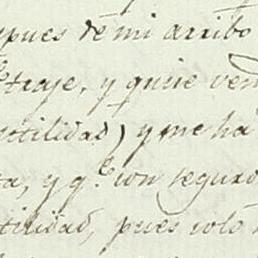 spues de mi arribo
traje, y quise ven
utilidad) y me ha
ta, y q.e con seguro
tilidad, pues solo